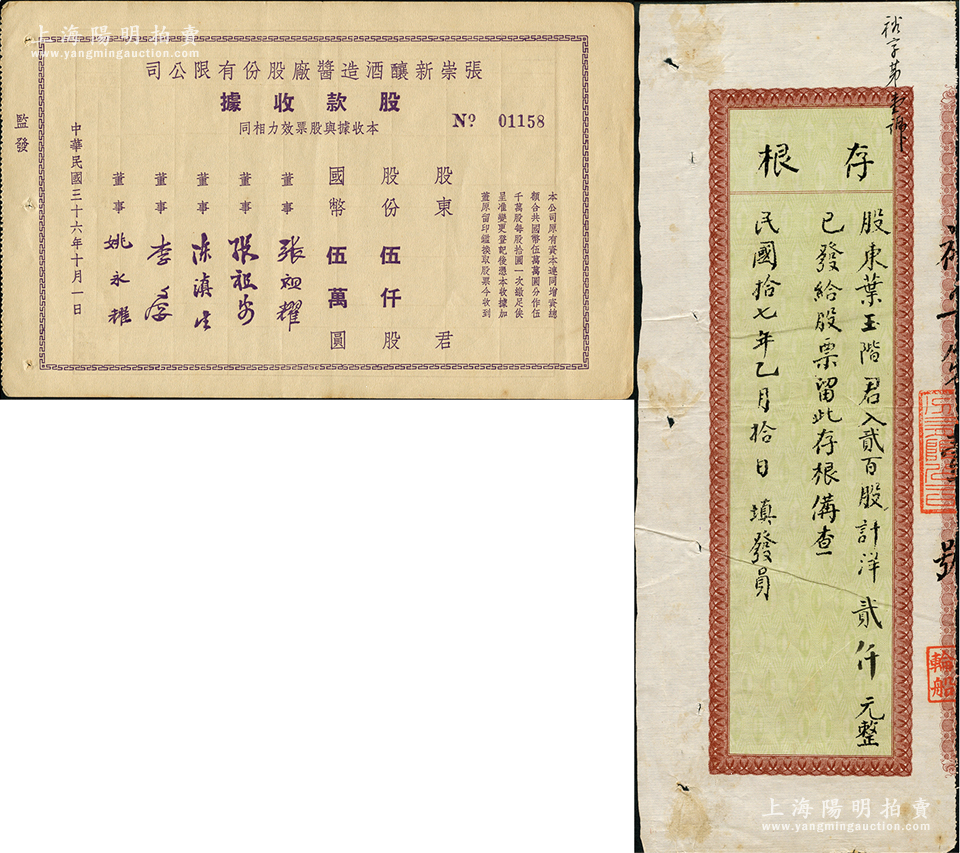 上海陽明拍賣
www.yangmingauction.com
張崇新釀酒造醬廠股份有限公司
股款收據
本收據與股票效力相同
Nº 01158
本公司原有資本連同增資總
額合共國幣伍萬萬圓分作伍
千萬股每股拾圓一次繳足俟
呈准變更登記後憑本收據加
蓋原留印鑑換取股票今收到
股東 君
股份伍仟股
國幣伍萬圓
董事 張祖耀
董事 張祖安
董事 陳滇生
董事 李
董事 姚永耀
中華民國三十六年十月一日
監發
裕字第壹號
存根
股東葉玉階君入貳百股計洋貳仟元整
已發給股票留此存根備查
民國拾七年乙月拾日 填發員
號
輪船
上海陽明拍賣
www.yangmingauction.com